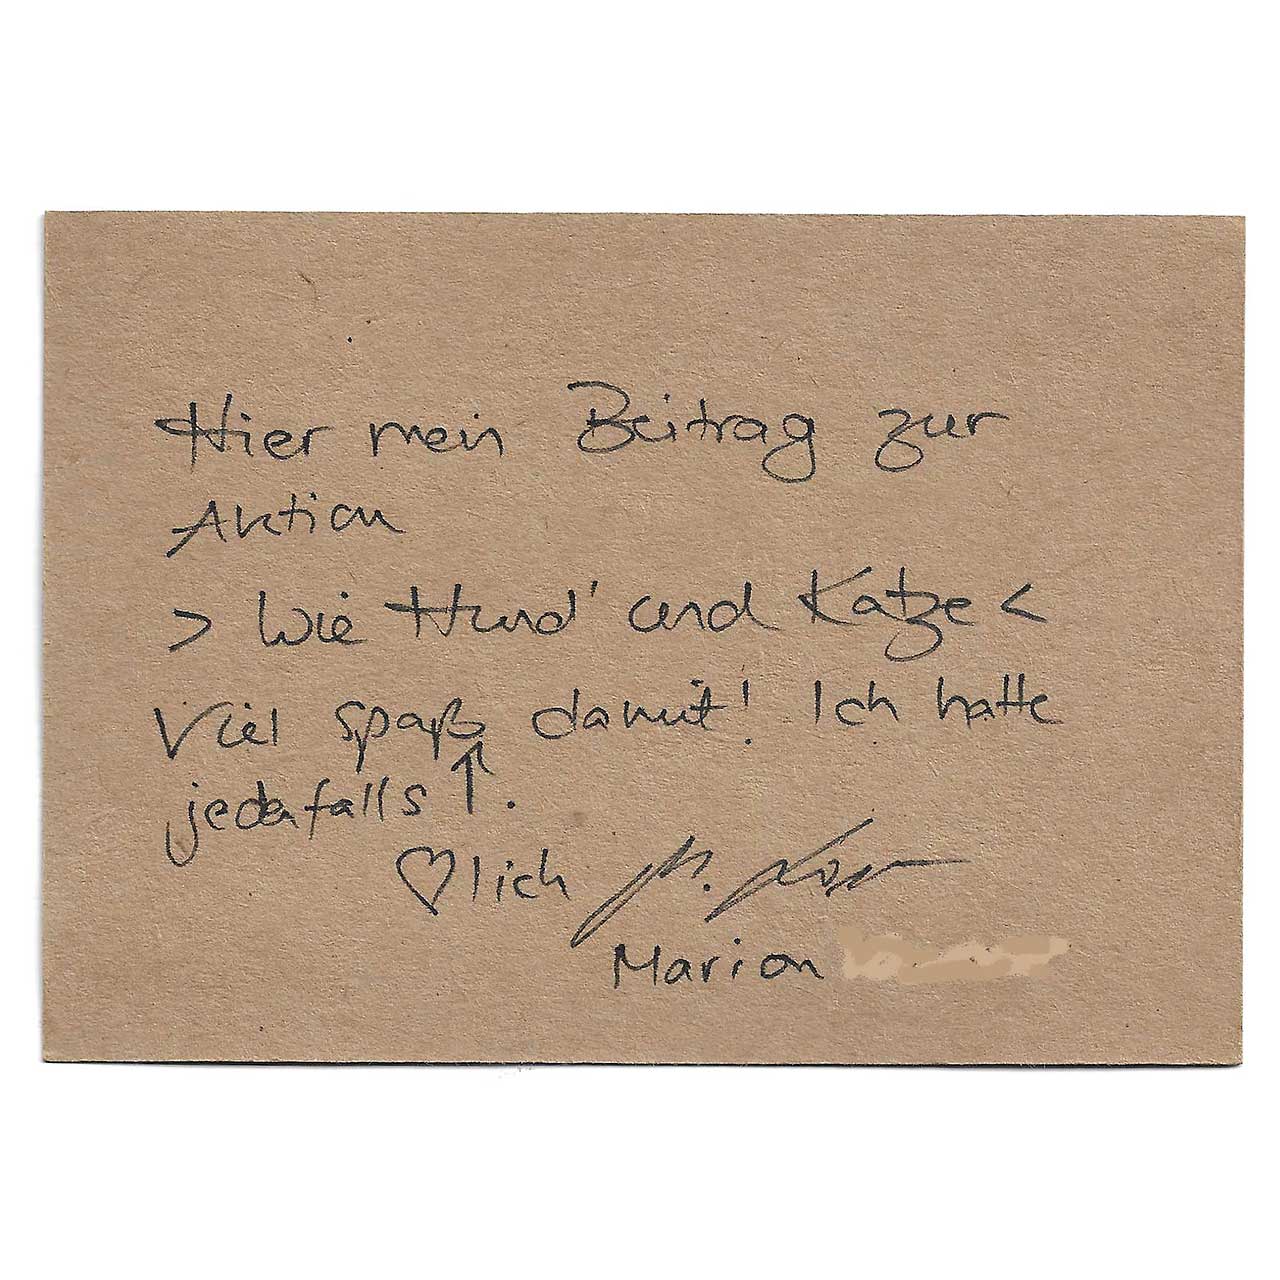 Hier mein Beitrag zur
Aktion
> Wie Hund' und Katze <
Viel Spaß damit! Ich hatte
jedenfalls ↑.
♡lich M.
Marion